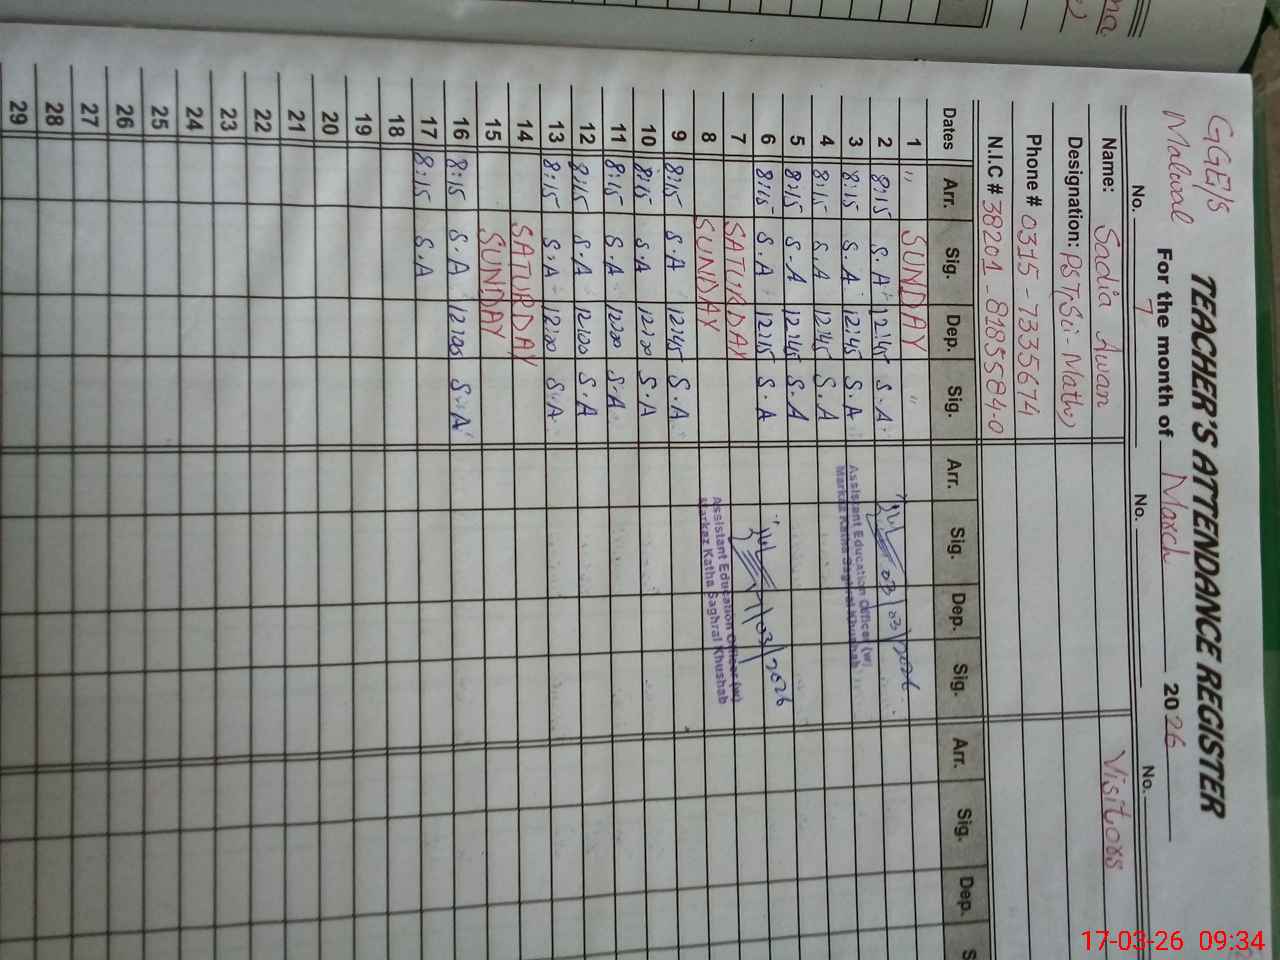 GGE/S
Malwal
TEACHER'S ATTENDANCE REGISTER
For the month of March 2026
No. 7 No. No.
Name: Sadia Awan Visitors
Designation: PST
Phone # 0315-7335674
N.I.C # 38201-8185584-0
Dates Arr. Sig. Dep. Sig. Arr. Sig. Dep. Sig. Arr. Sig. Dep. S
1 " SUNDAY "
2 8:15 S.A 12:45 S.A 03/03/2026
3 8:15 S.A 12:45 S.A Assistant Education Officer (w)
Markaz Katha Saghral Khushab
4 8:15 S.A 12:45 S.A
5 8:15 S.A 12:45 S.A
6 8:15 S.A 12:15 S.A /03/2026
7 SATURDAY Assistant Education Officer (w)
8 SUNDAY Markaz Katha Saghral Khushab
9 8:15 S.A 12:45 S.A
10 8:15 S.A 12:00 S.A
11 8:15 S.A 12:00 S.A
12 8:15 S.A 12:00 S.A
13 8:15 S.A 12:00 S.A
14 SATURDAY
15 SUNDAY
16 8:15 S.A 12:00 S.A
17 8:15 S.A
18
19
20
21
22
23
24
25
26
27
28
29
17-03-26 09:34